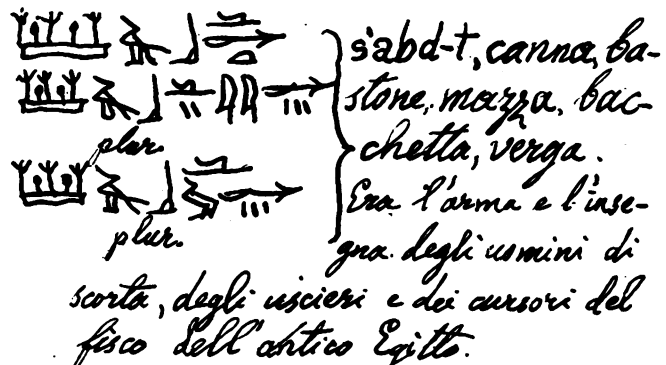 s'abd-t, canna, ba-
stone, mazza, bac-
plur.
chetta, verga.
Era l'arma e l'inse-
plur.
gna degli uomini di
scorta, degli uscieri e dei cursori del
fisco dell'antico Egitto.